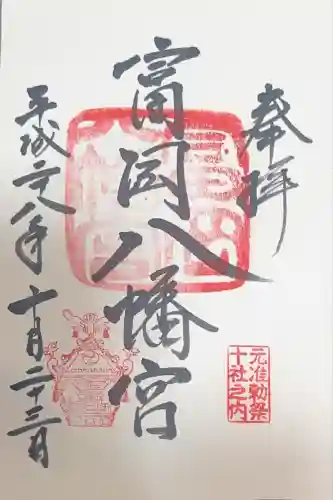 奉拝
富岡八幡宮
平成二十八年十月二十三日
元准勅祭
十社之内